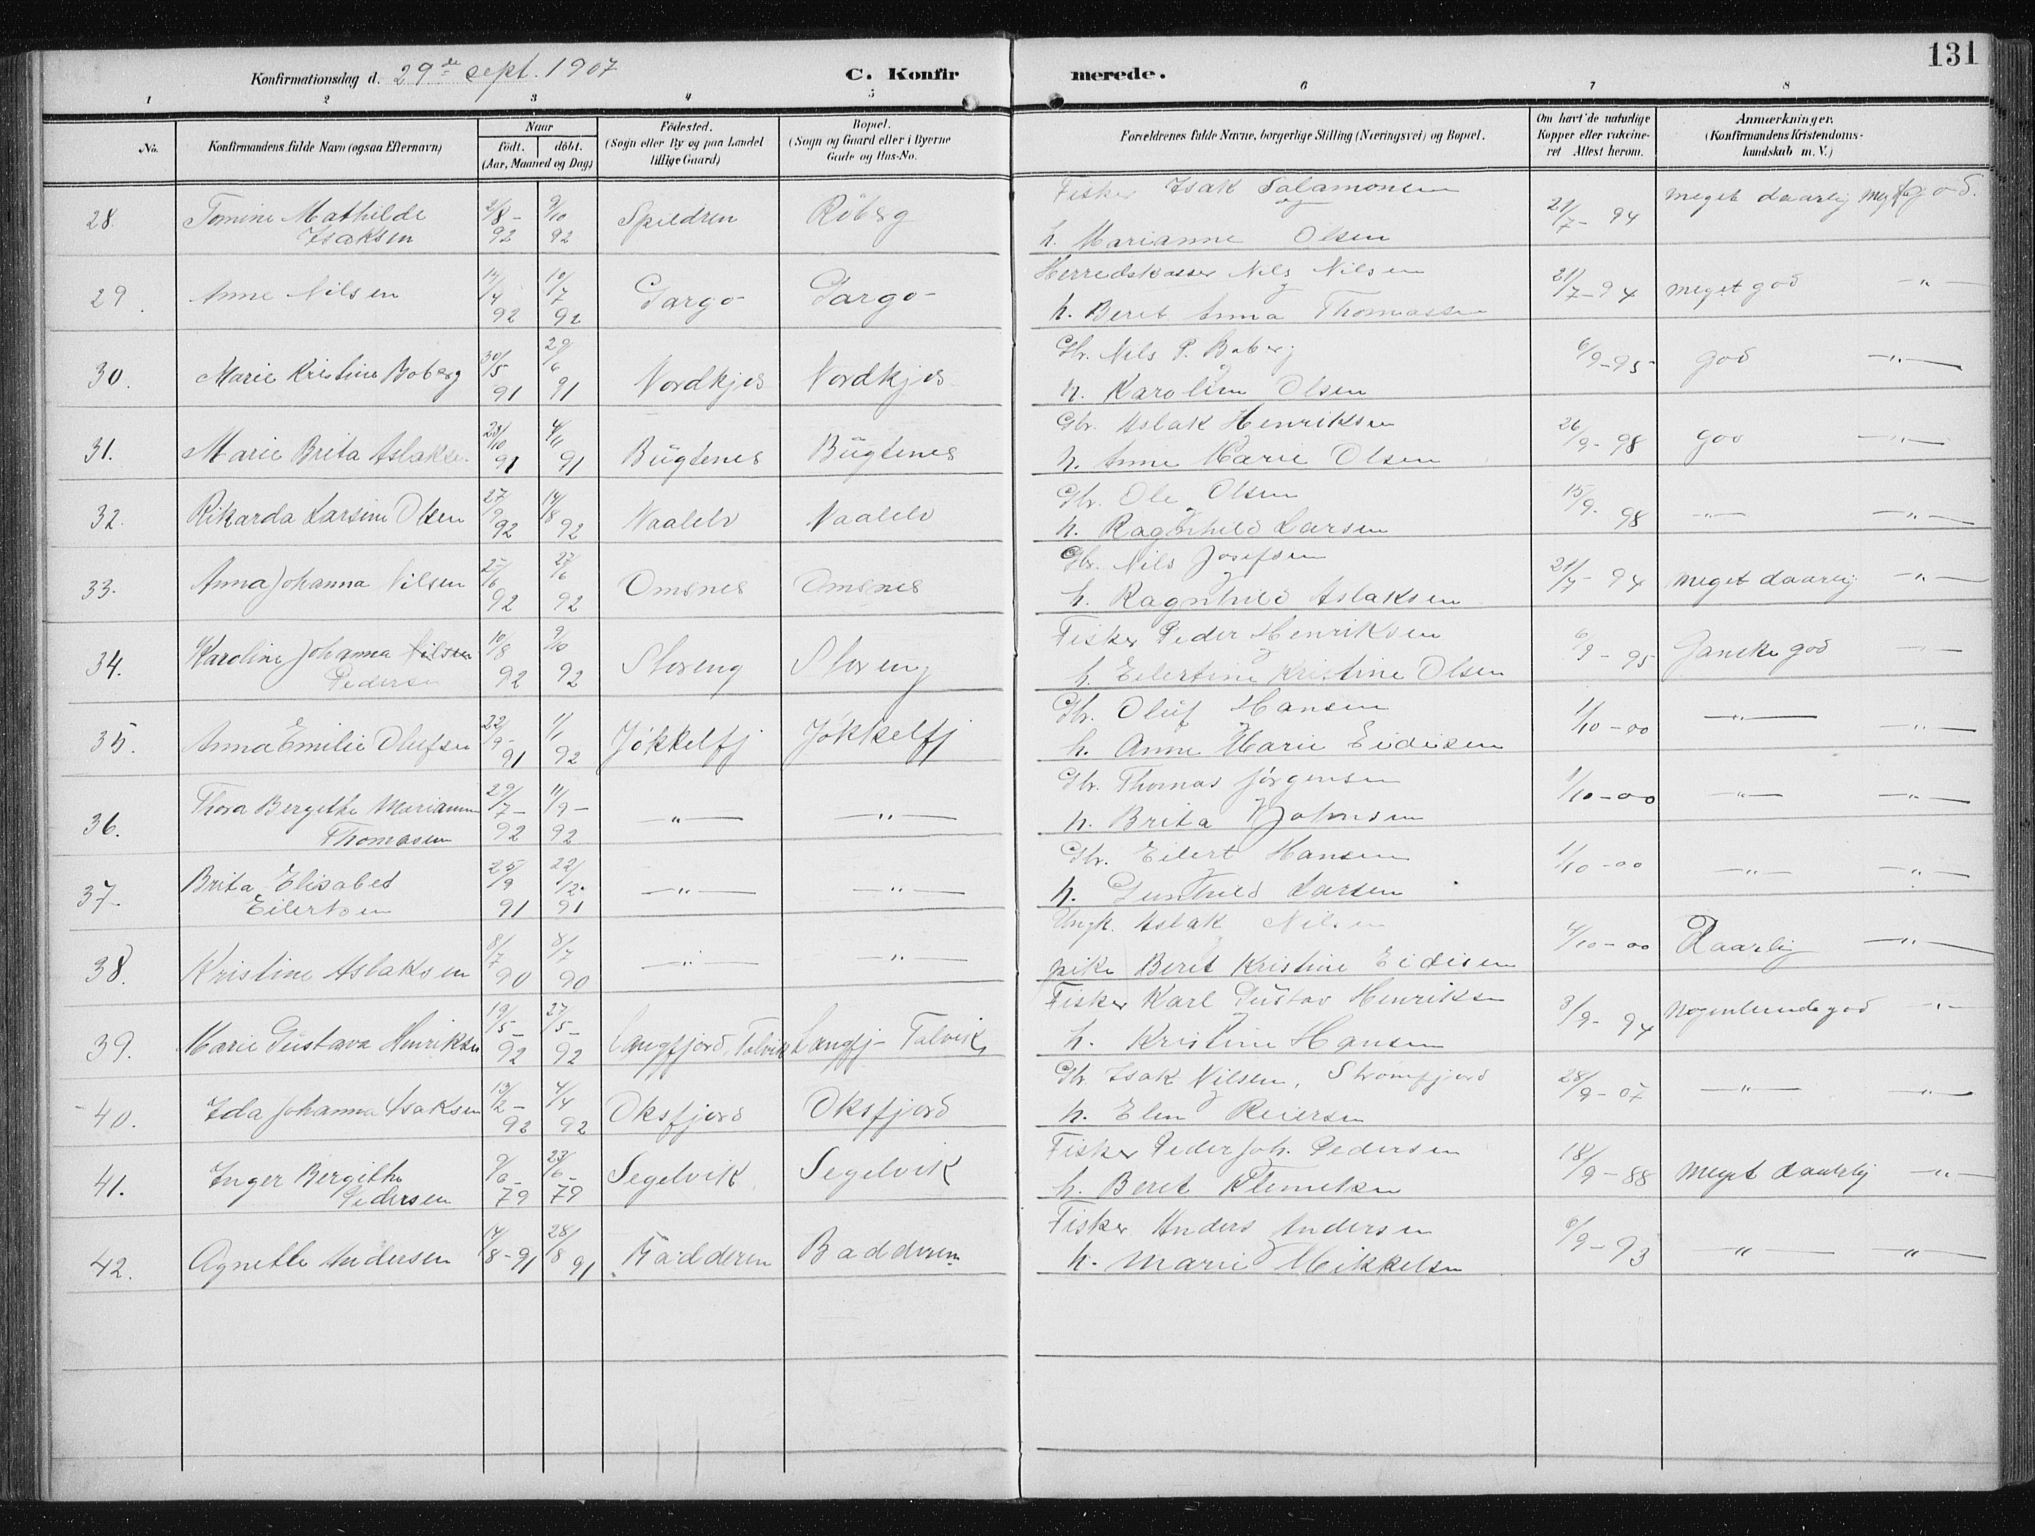 131
Konfirmationsdag d. 29de sept. 1907
C. Konfirmerede.
1 2 3 4 5 6 7 8
No.
Konfirmandens fulde Navn (ogsaa Efternavn)
Naar
født. døbt.
(Aar, Maaned og Dag)
Fødested.
(Sogn eller By og paa Landet
tillige Gaard)
Bopæl.
(Sogn og Gaard eller i Byerne
Gade og Hus-No.
Forældrenes fulde Navne, borgerlige Stilling (Næringsvei) og Bopæl.
Om havt de naturlige
Kopper eller vakcine-
ret Attest herom.
Anmærkninger.
(Konfirmandens Kristendoms-
kundskab m. V.)
28. Tomine Mathilde Isaksen 2/8 - 92 9/10 92 Spildren Röberg Fisker Isak Salamonsen og h. Marianne Olsen 21/7 - 94 meget daarlig god.
29. Anne Nilsen 92 10/7 92 Gargo Gargo Nils Nilsen h. Beret Anna Thomassen 21/7 - 94 meget god -"-
30. Marie Kristine Boberg 30/5 91 29/6 91 Nordkjos Nordkjos Gbr. Nils P. Boberg h. Karoline Olsen 6/9 - 95 god -"-
31. Marie Brita Aslaksen 91 4/11 91 Bügtenes Bügtenes Gbr. Aslak Henriksen h. Anne Marie Olsen 26/9 - 98 god -"-
32. Rikarda Larsine Olsen 92 14/8 92 Naalelv Naalelv Gbr. Ole Olsen h. Ragnhild Larsen 15/9 98 -"- -"-
33. Anna Johanna Nilsen 92 27/6 92 Omsnes Omsnes Gbr. Nils Josefsen h. Ragnhild Aslaksen 21/7 - 94 meget daarlig -"-
34. Karoline Johanna Nilsen Pedersen 10/8 92 9/10 92 Storeng Storeng Fisker Peder Henriksen h. Eilertine Kristine Olsen 6/9 - 95 Ganske god -"-
35. Anna Emilie Olufsen 22/9 - 91 1/1 92 Jøkkelfj Jøkkelfj Gbr. Oluf Hansen h. Anne Marie Eidisen 1/10 - 00 -"- -"-
36. Thora Bergithe Marianne Thomasen 29/7 - 92 11/9 - 92 -"- -"- Gbr. Thomas Jørgensen h. Brita Johnsen 1/10 - 00 -"- -"-
37. Brita Elisabet Eilertsen 25/9 91 22/12. 91 -"- -"- Gbr. Eilert Hansen h. Gunhild Larsen 1/10 - 00 -"- -"-
38. Kristine Aslaksen 8/7 90 8/7 90 -"- -"- Ungk. Aslak Nilsen pike Berit Kristine Eidisen 4/10 - 00 Daarlig -"-
39. Marie Gustava Henriksen 19/5 - 92 27/5 - 92 Langfjord, Talvik Langfj - Talvik Fisker Karl Gustav Henriksen h. Kristine Hansen 3/9 - 94 Nogenlunde god -"-
40. Ida Johanna Isaksen 13/2 - 92 4/4 92 Oksfjord Oksfjord Gbr. Isak Nilsen, Stromfjord h. Elen Reiersen 28/9 - 07 -"- -"-
41. Inger Bergithe Pedersen 9/6 - 79 23/6 - 79 Segelvik Segelvik Fisker Peder Joh. Pedersen h. Beret 18/9 - 88 meget daarlig -"-
42. Agnette Andersen 8 - 91 28/8 91 Badderen Badderen Fisker Anders Andersen h. Marie Mikkelsen 6/9 - 93 -"- -"-